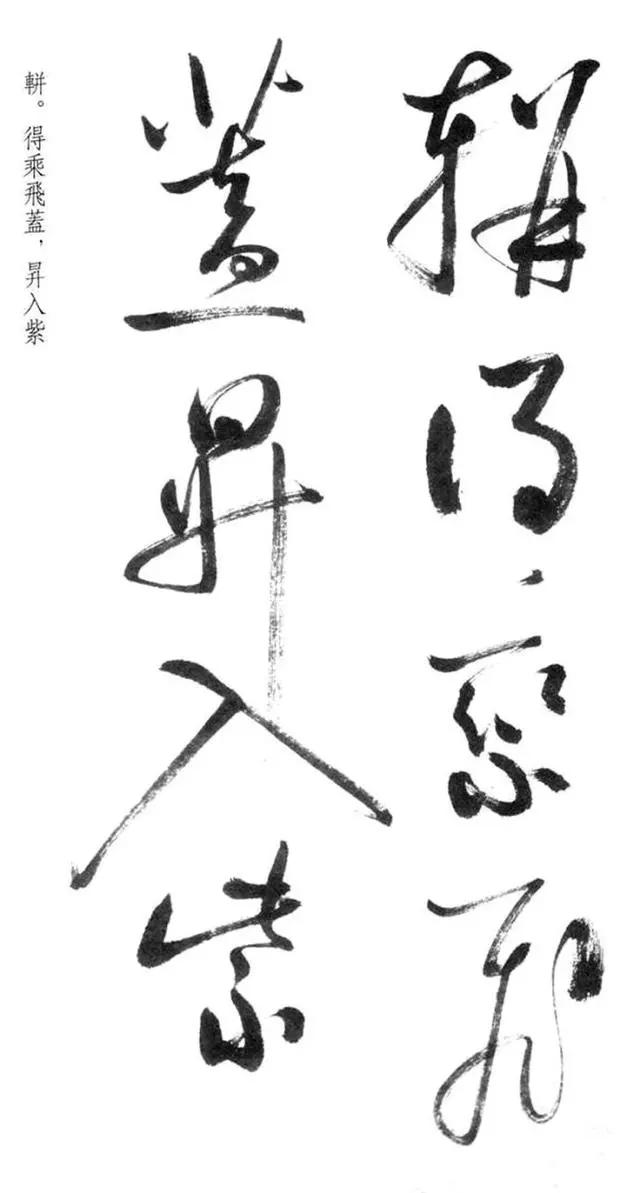 軿得乗飛
蓋昇入紫
軿。得乘飛蓋，昇入紫